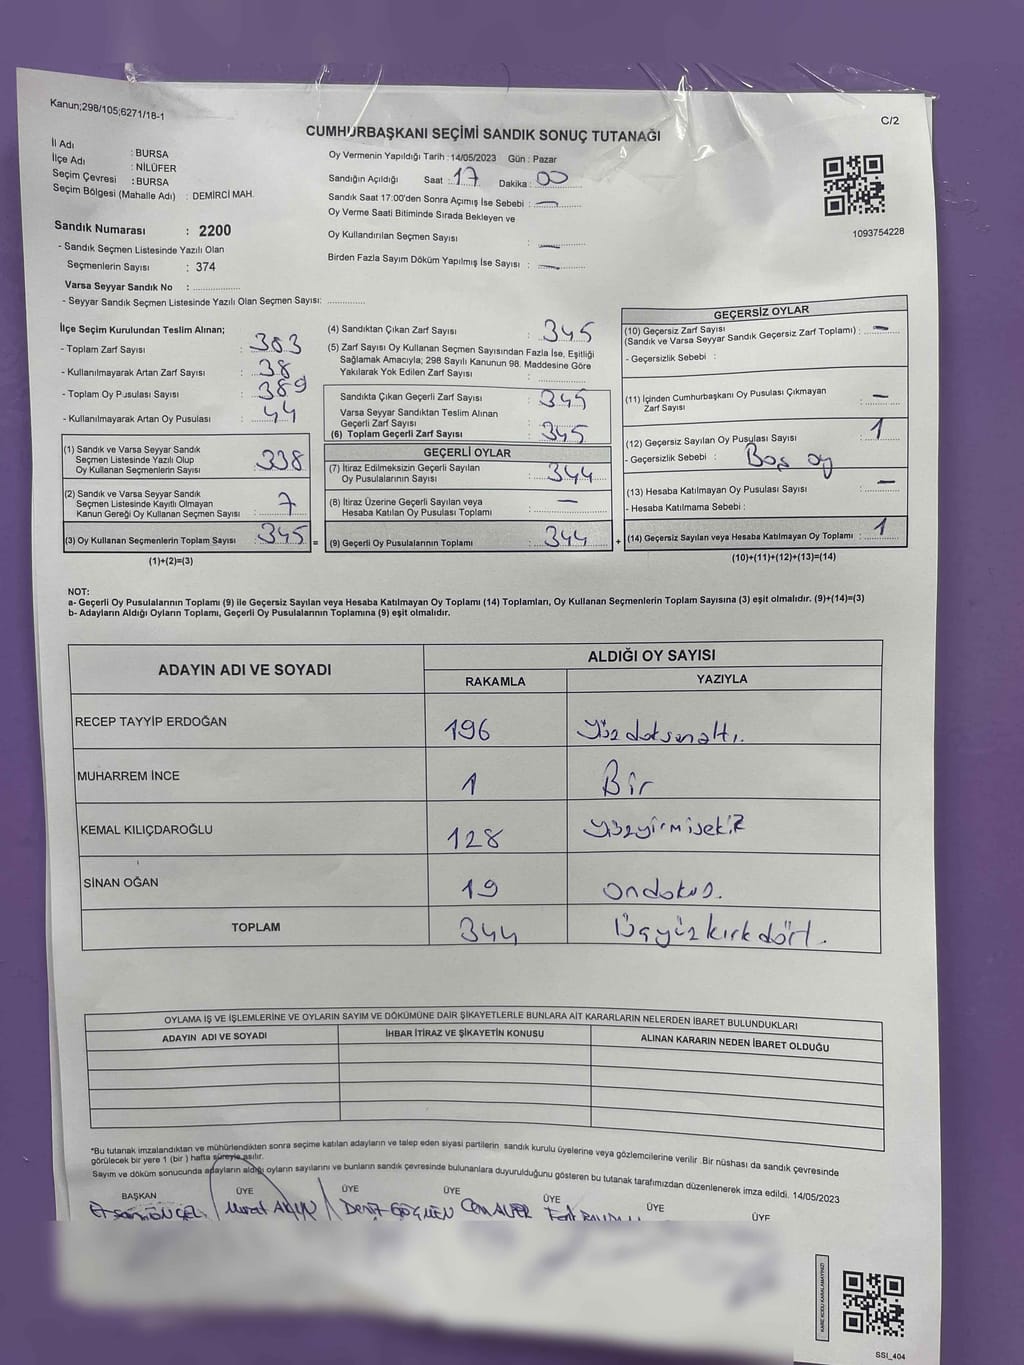 Kanun;298/105;6271/18-1
C/2
CUMHURBAŞKANI SEÇİMİ SANDIK SONUÇ TUTANAĞI
İl Adı : BURSA
İlçe Adı : NİLÜFER
Seçim Çevresi : BURSA
Seçim Bölgesi (Mahalle Adı) : DEMİRCİ MAH.
Sandık Numarası : 2200
- Sandık Seçmen Listesinde Yazılı Olan
Seçmenlerin Sayısı : 374
Varsa Seyyar Sandık No : ..............
- Seyyar Sandık Seçmen Listesinde Yazılı Olan Seçmen Sayısı: ............
Oy Vermenin Yapıldığı Tarih :14/05/2023 Gün : Pazar
Sandığın Açıldığı Saat : 17 Dakika : 00
Sandık Saat 17:00'den Sonra Açımış İse Sebebi : —
Oy Verme Saati Bitiminde Sırada Bekleyen ve
Oy Kullandırılan Seçmen Sayısı : —
Birden Fazla Sayım Döküm Yapılmış İse Sayısı : —
1093754228
İlçe Seçim Kurulundan Teslim Alınan;
- Toplam Zarf Sayısı : 383
- Kullanılmayarak Artan Zarf Sayısı : 38
- Toplam Oy Pusulası Sayısı : 389
- Kullanılmayarak Artan Oy Pusulası : 44
(1) Sandık ve Varsa Seyyar Sandık
Seçmen Listesinde Yazılı Olup
Oy Kullanan Seçmenlerin Sayısı : 338
(2) Sandık ve Varsa Seyyar Sandık
Seçmen Listesinde Kayıtlı Olmayan
Kanun Gereği Oy Kullanan Seçmen Sayısı : 7
(3) Oy Kullanan Seçmenlerin Toplam Sayısı : 345 =
(1)+(2)=(3)
(4) Sandıktan Çıkan Zarf Sayısı : 345
(5) Zarf Sayısı Oy Kullanan Seçmen Sayısından Fazla İse, Eşitliği
Sağlamak Amacıyla; 298 Sayılı Kanunun 98. Maddesine Göre
Yakılarak Yok Edilen Zarf Sayısı : ..............
Sandıkta Çıkan Geçerli Zarf Sayısı : 345
Varsa Seyyar Sandıktan Teslim Alınan
Geçerli Zarf Sayısı : ..............
(6) Toplam Geçerli Zarf Sayısı : 345
GEÇERLİ OYLAR
(7) İtiraz Edilmeksizin Geçerli Sayılan
Oy Pusulalarının Sayısı : 344
(8) İtiraz Üzerine Geçerli Sayılan veya
Hesaba Katılan Oy Pusulası Toplamı : —
(9) Geçerli Oy Pusulalarının Toplamı : 344 +
GEÇERSİZ OYLAR
(10) Geçersiz Zarf Sayısı
(Sandık ve Varsa Seyyar Sandık Geçersiz Zarf Toplamı) : —
- Geçersizlik Sebebi :
(11) İçinden Cumhurbaşkanı Oy Pusulası Çıkmayan
Zarf Sayısı : —
(12) Geçersiz Sayılan Oy Pusulası Sayısı : 1
- Geçersizlik Sebebi : Boş oy
(13) Hesaba Katılmayan Oy Pusulası Sayısı : —
- Hesaba Katılmama Sebebi :
(14) Geçersiz Sayılan veya Hesaba Katılmayan Oy Toplamı : 1
(10)+(11)+(12)+(13)=(14)
NOT:
a- Geçerli Oy Pusulalarının Toplamı (9) ile Geçersiz Sayılan veya Hesaba Katılmayan Oy Toplamı (14) Toplamları, Oy Kullanan Seçmenlerin Toplam Sayısına (3) eşit olmalıdır. (9)+(14)=(3)
b- Adayların Aldığı Oyların Toplamı, Geçerli Oy Pusulalarının Toplamına (9) eşit olmalıdır.
ADAYIN ADI VE SOYADI
ALDIĞI OY SAYISI
RAKAMLA YAZIYLA
RECEP TAYYİP ERDOĞAN 196 Yüz doksan altı.
MUHARREM İNCE 1 Bir
KEMAL KILIÇDAROĞLU 128 Yüzyirmisekiz
SİNAN OĞAN 19 ondokuz.
TOPLAM 344 Üçyüz kırk dört.
OYLAMA İŞ VE İŞLEMLERİNE VE OYLARIN SAYIM VE DÖKÜMÜNE DAİR ŞİKAYETLERLE BUNLARA AİT KARARLARIN NELERDEN İBARET BULUNDUKLARI
ADAYIN ADI VE SOYADI İHBAR İTİRAZ VE ŞİKAYETİN KONUSU ALINAN KARARIN NEDEN İBARET OLDUĞU
*Bu tutanak imzalandıktan ve mühürlendikten sonra seçime katılan adayların ve talep eden siyasi partilerin sandık kurulu üyelerine veya gözlemcilerine verilir .Bir nüshası da sandık çevresinde
görülecek bir yere 1 (bir ) hafta süreyle asılır.
Sayım ve döküm sonucunda adayların aldığı oyların sayılarını ve bunların sandık çevresinde bulunanlara duyurulduğunu gösteren bu tutanak tarafımızdan düzenlenerek imza edildi. 14/05/2023
BAŞKAN ÜYE ÜYE ÜYE ÜYE ÜYE ÜYE
Murat Deniz GÖÇMEN
KARE KODU KARALAMAYINIZ!
SSI_404